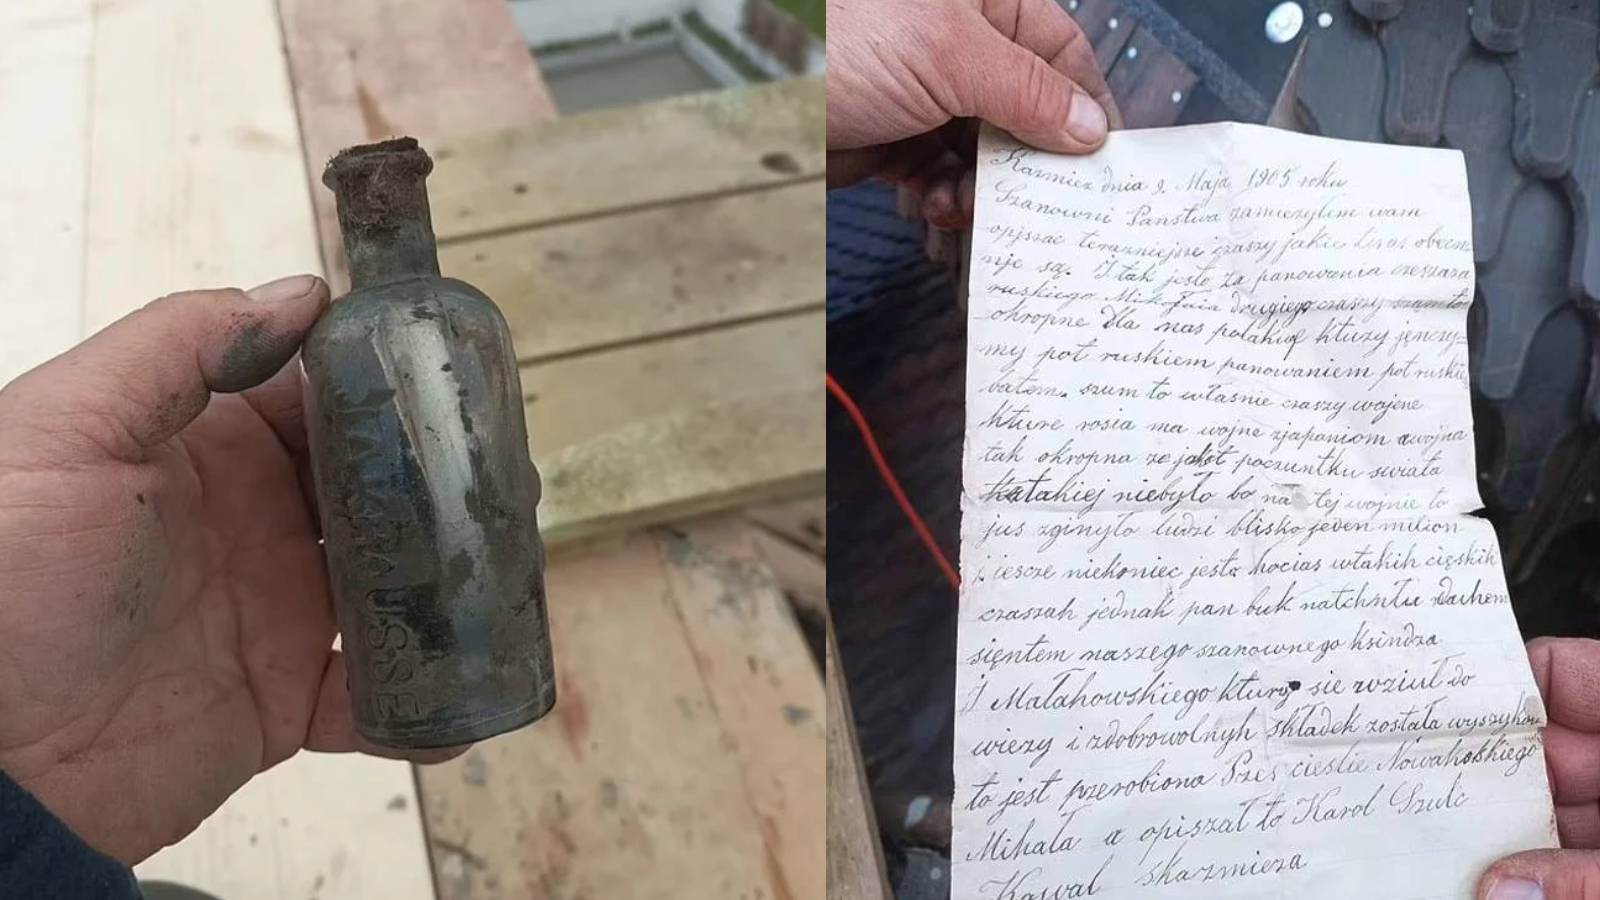 USSE
Kazmiez dnia 9. Maja 1905 roku
Szanowni Panstwa zamiezylem wam
opiszac terazniejsze czaszy jakie teras obecn
nje są. I tak jeste za panowania czeszara
ruskiego Mikołaia drugiego czaszy szam to
okropne dla nas polakuf ktuzy jenczy=
my pot ruskiem panowaniem pot ruskie
batem. szum to właśnie czaszy wojene
kture rosia ma wojne zjaponiom a wojna
tak okropna ze jak ot poczuntku swiata
katakiej niebyło bo na tej wojnie to
jus zginyło ludzi blisko jeden milion
i iescze niekoniec jesta hocias wtakih cięskih
czaszah jednak pan buk natchnłu duchem
sięntem naszego szanownego ksindza
J Małahowskiego ktury sie wziuł do
wiezy i zdobrowolnyh składek została wyszykow
to jest pzerobiona Przes cieslie Nowakoskiego
Mihała a opiszał to Karol Szulc
Kowal skazmieza